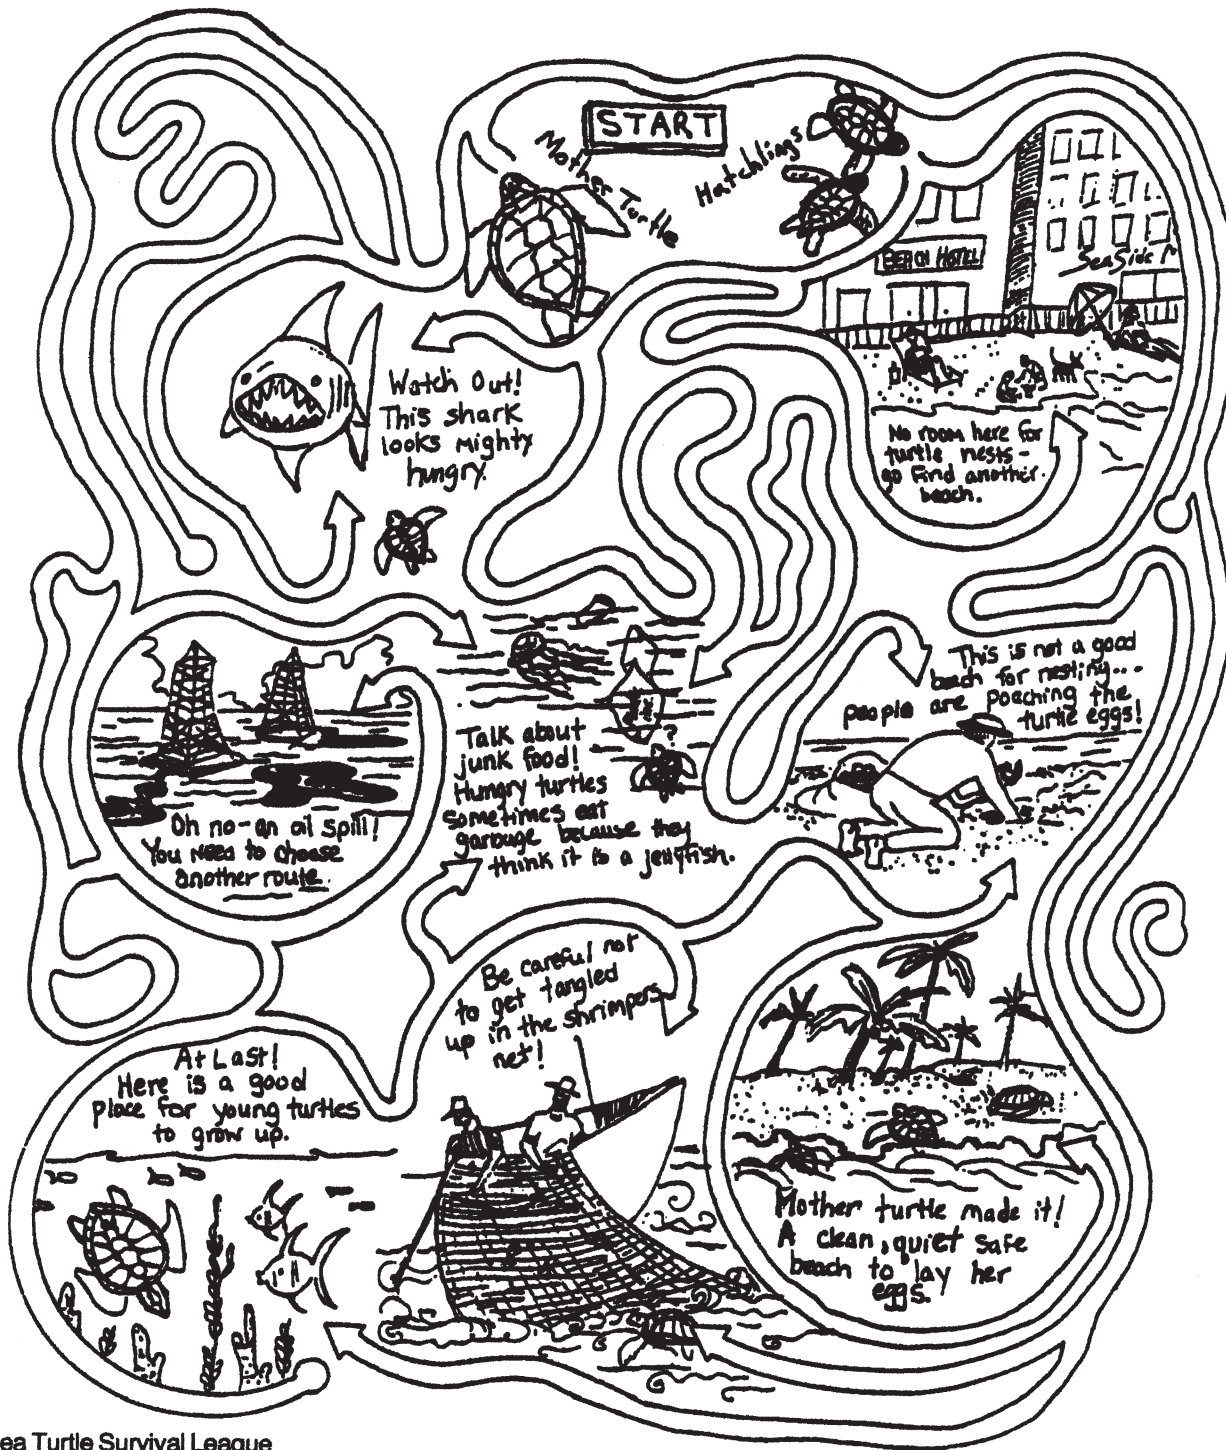 START
Mother Turtle
Hatchlings
BEACH HOTEL
SeaSide
Watch Out!
This shark
looks mighty
hungry.
No room here for
turtle nests-
go find another
beach.
This is not a good
beach for nesting...
people are poaching the
turtle eggs!
Talk about
junk food!
Hungry turtles
sometimes eat
garbage because they
think it is a jellyfish.
?
Oh no-an oil spill!
You Need to choose
another route.
Be careful not
to get tangled
up in the shrimpers
net!
At Last!
Here is a good
place for young turtles
to grow up.
Mother turtle made it!
A clean, quiet safe
beach to lay her
eggs.
ea Turtle Survival League